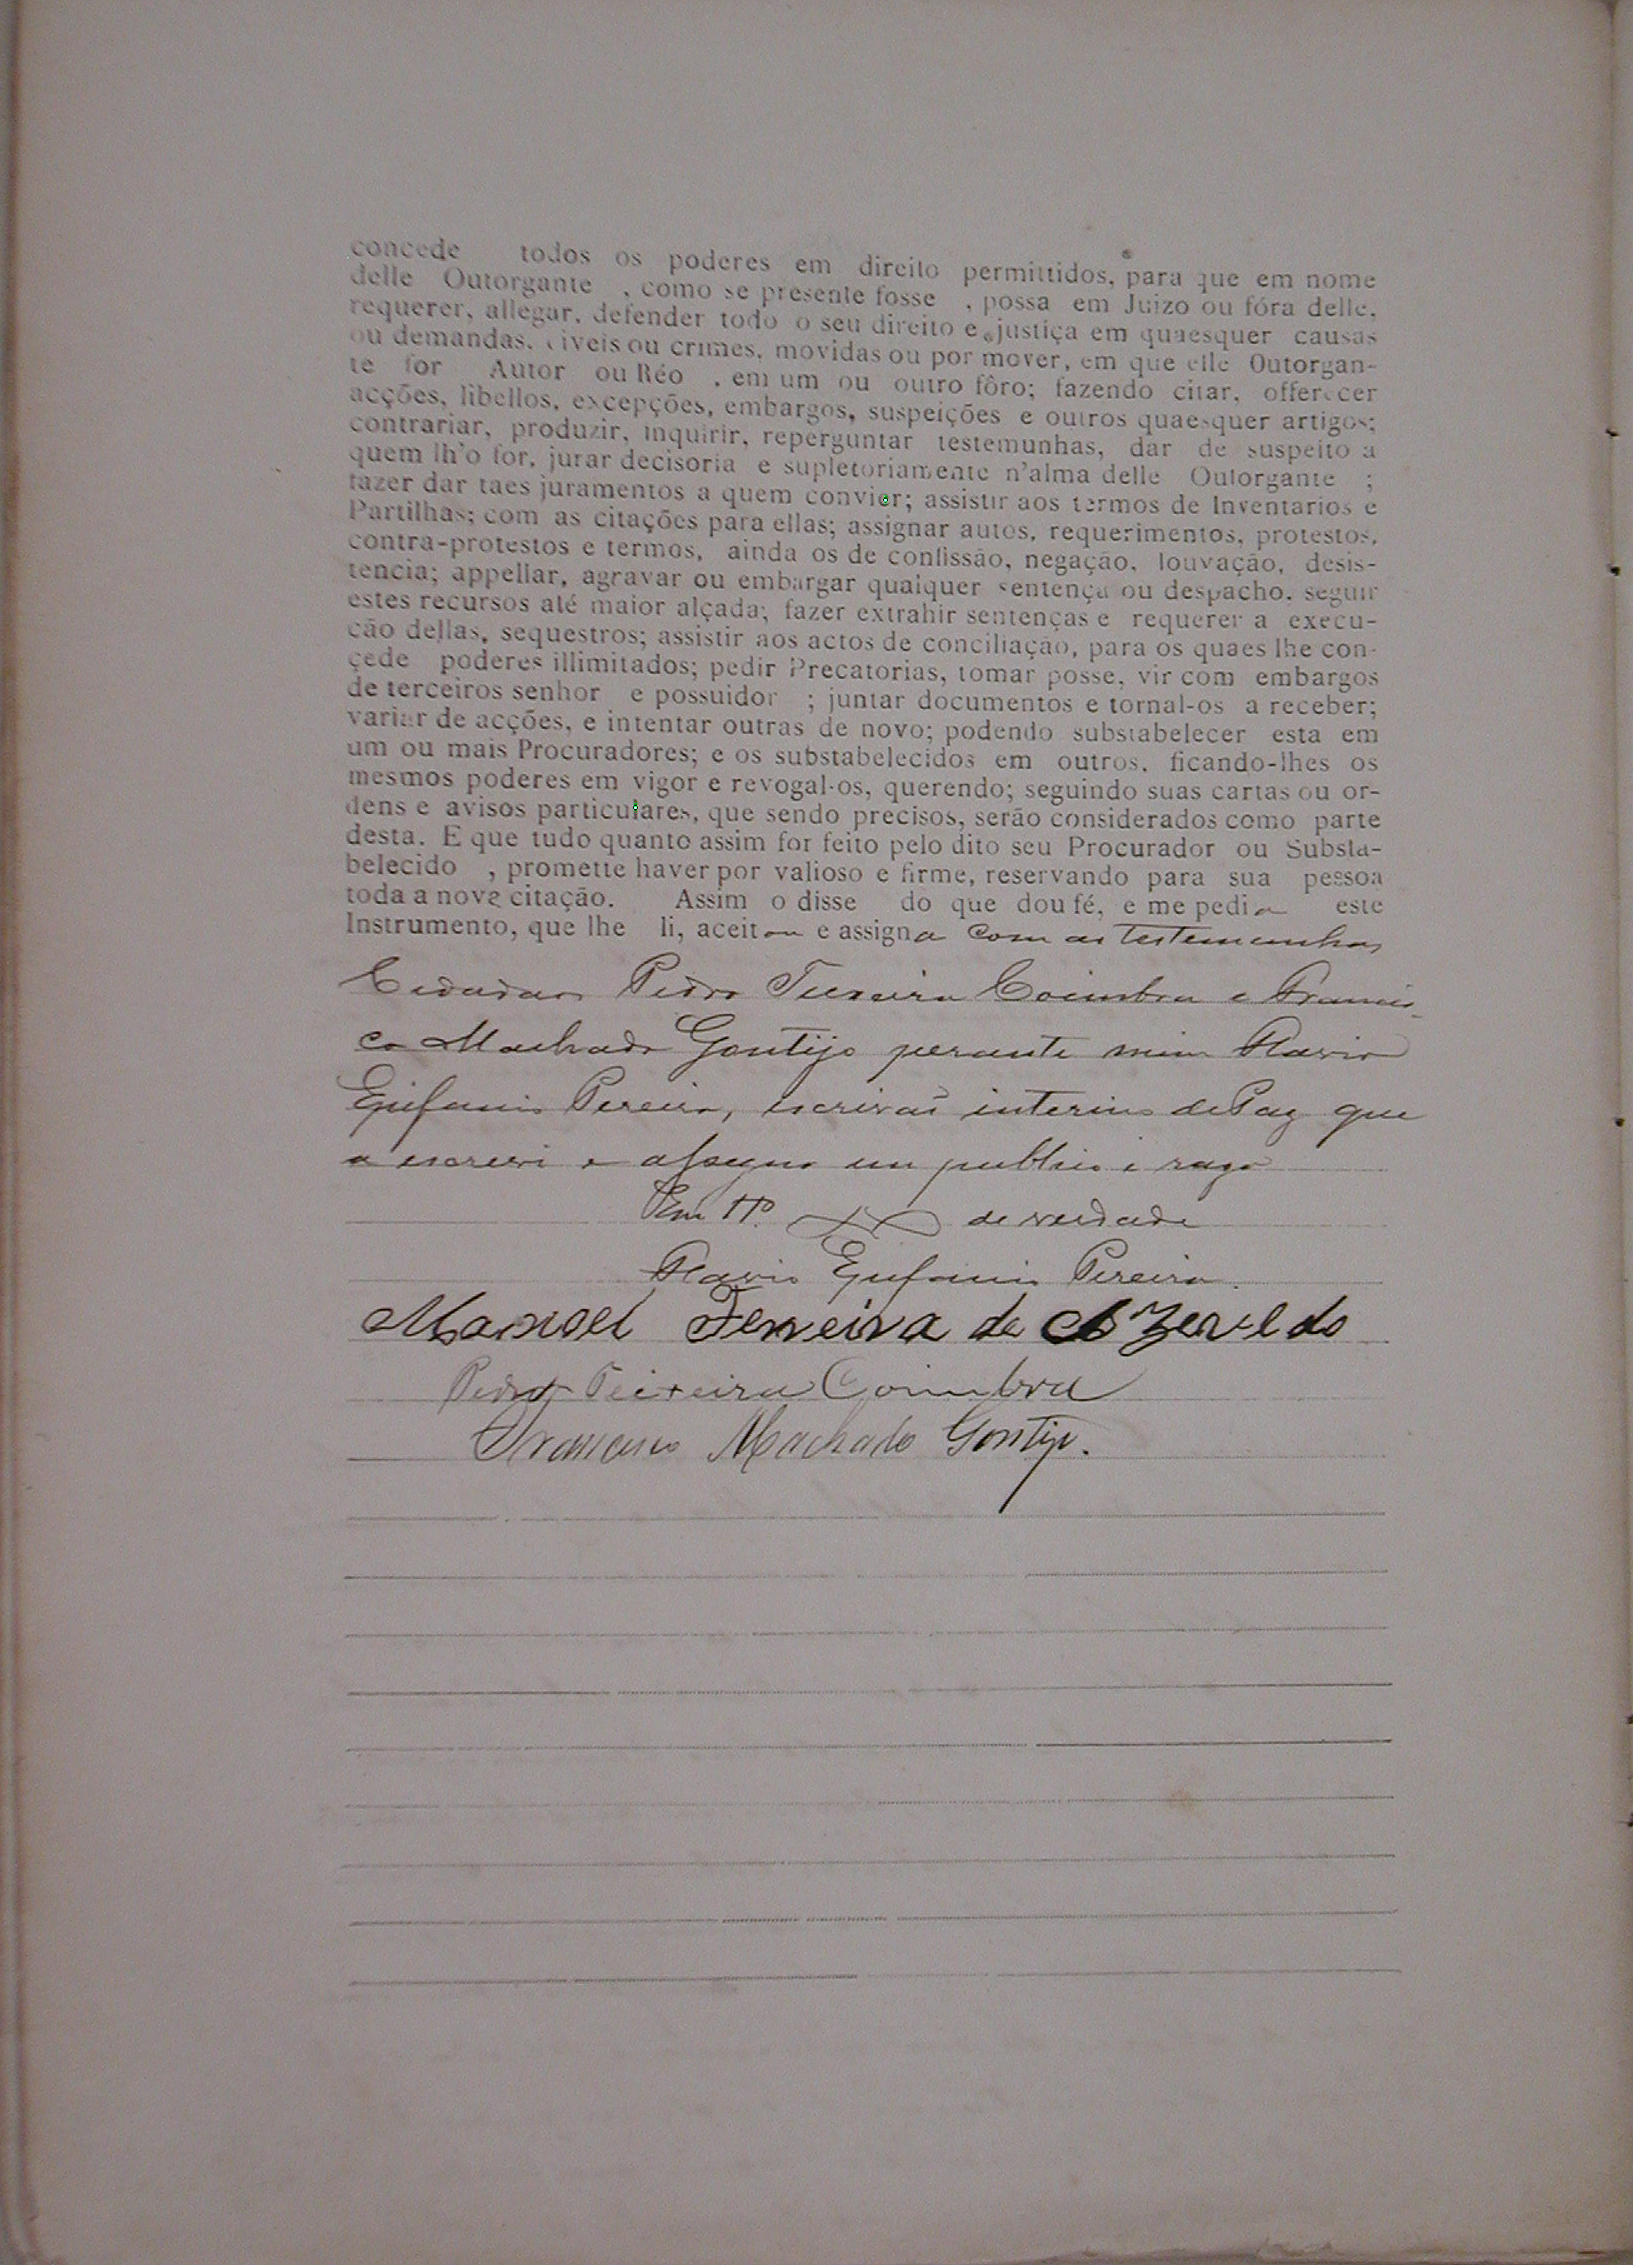 concede todos os poderes em direito permittidos, para que em nome
delle Outorgante , como se presente fosse , possa em Juizo ou fóra delle,
requerer, allegar, defender todo o seu direito e justiça em quaesquer causas
ou demandas, civeis ou crimes, movidas ou por mover, em que elle Outorgan-
te for Autor ou Réo , em um ou outro fôro; fazendo citar, offerecer
acções, libellos, excepções, embargos, suspeições e outros quaesquer artigos;
contrariar, produzir, inquirir, reperguntar testemunhas, dar de suspeito a
quem lh'o for, jurar decisoria e supletoriamente n'alma delle Outorgante ;
fazer dar taes juramentos a quem convier; assistir aos termos de Inventarios e
Partilhas; com as citações para ellas; assignar autos, requerimentos, protestos,
contra-protestos e termos, ainda os de confissão, negação, louvação, desis-
tencia; appellar, agravar ou embargar qualquer sentença ou despacho, seguir
estes recursos até maior alçada; fazer extrahir sentenças e requerer a execu-
cão dellas, sequestros; assistir aos actos de conciliação, para os quaes lhe con-
çede poderes illimitados; pedir Precatorias, tomar posse, vir com embargos
de terceiros senhor e possuidor ; juntar documentos e tornal-os a receber;
variar de acções, e intentar outras de novo; podendo substabelecer esta em
um ou mais Procuradores; e os substabelecidos em outros, ficando-lhes os
mesmos poderes em vigor e revogal-os, querendo; seguindo suas cartas ou or-
dens e avisos particulares, que sendo precisos, serão considerados como parte
desta. E que tudo quanto assim for feito pelo dito seu Procurador ou Substa-
belecido , promette haver por valioso e firme, reservando para sua pessoa
toda a nova citação. Assim o disse do que dou fé, e me pedio este
Instrumento, que lhe li, aceitou e assigna com as testemunhas
Cidadãos Pedro Teixeira Coimbra e Francis-
co Machado Gontijo perante mim Flavio
Epifanio Pereira, escrivaõ interino de Paz que
o escrevi e assigno em publico e raso
Em Tº. de verdade
Flavio Epifanio Pereira.
Manoel Ferreira de Azevedo
Pedro Teixeira Coimbra
Francisco Machado Gontijo.